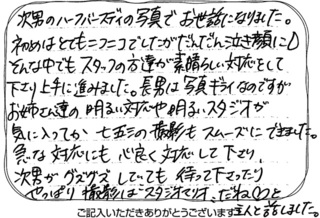 次男のハーフバースディの写真でお世話になりました。
初めはとてもニコニコでしたがだんだん泣き顔に
そんな中でもスタッフの方達が素晴らしい対応をして
下さり上手に進みました。長男は写真ギライなのですが
お姉さん達の明るい対応や明るいスタジオが
気に入ってか七五三の撮影もスムーズにできました。
急な対応にも心良く対応して下さり、
次男がグズグズしていても待って下さったり
やっぱり撮影はスタジオマリオだね♡♡と
ご記入いただきありがとうございます 主人と話しました。